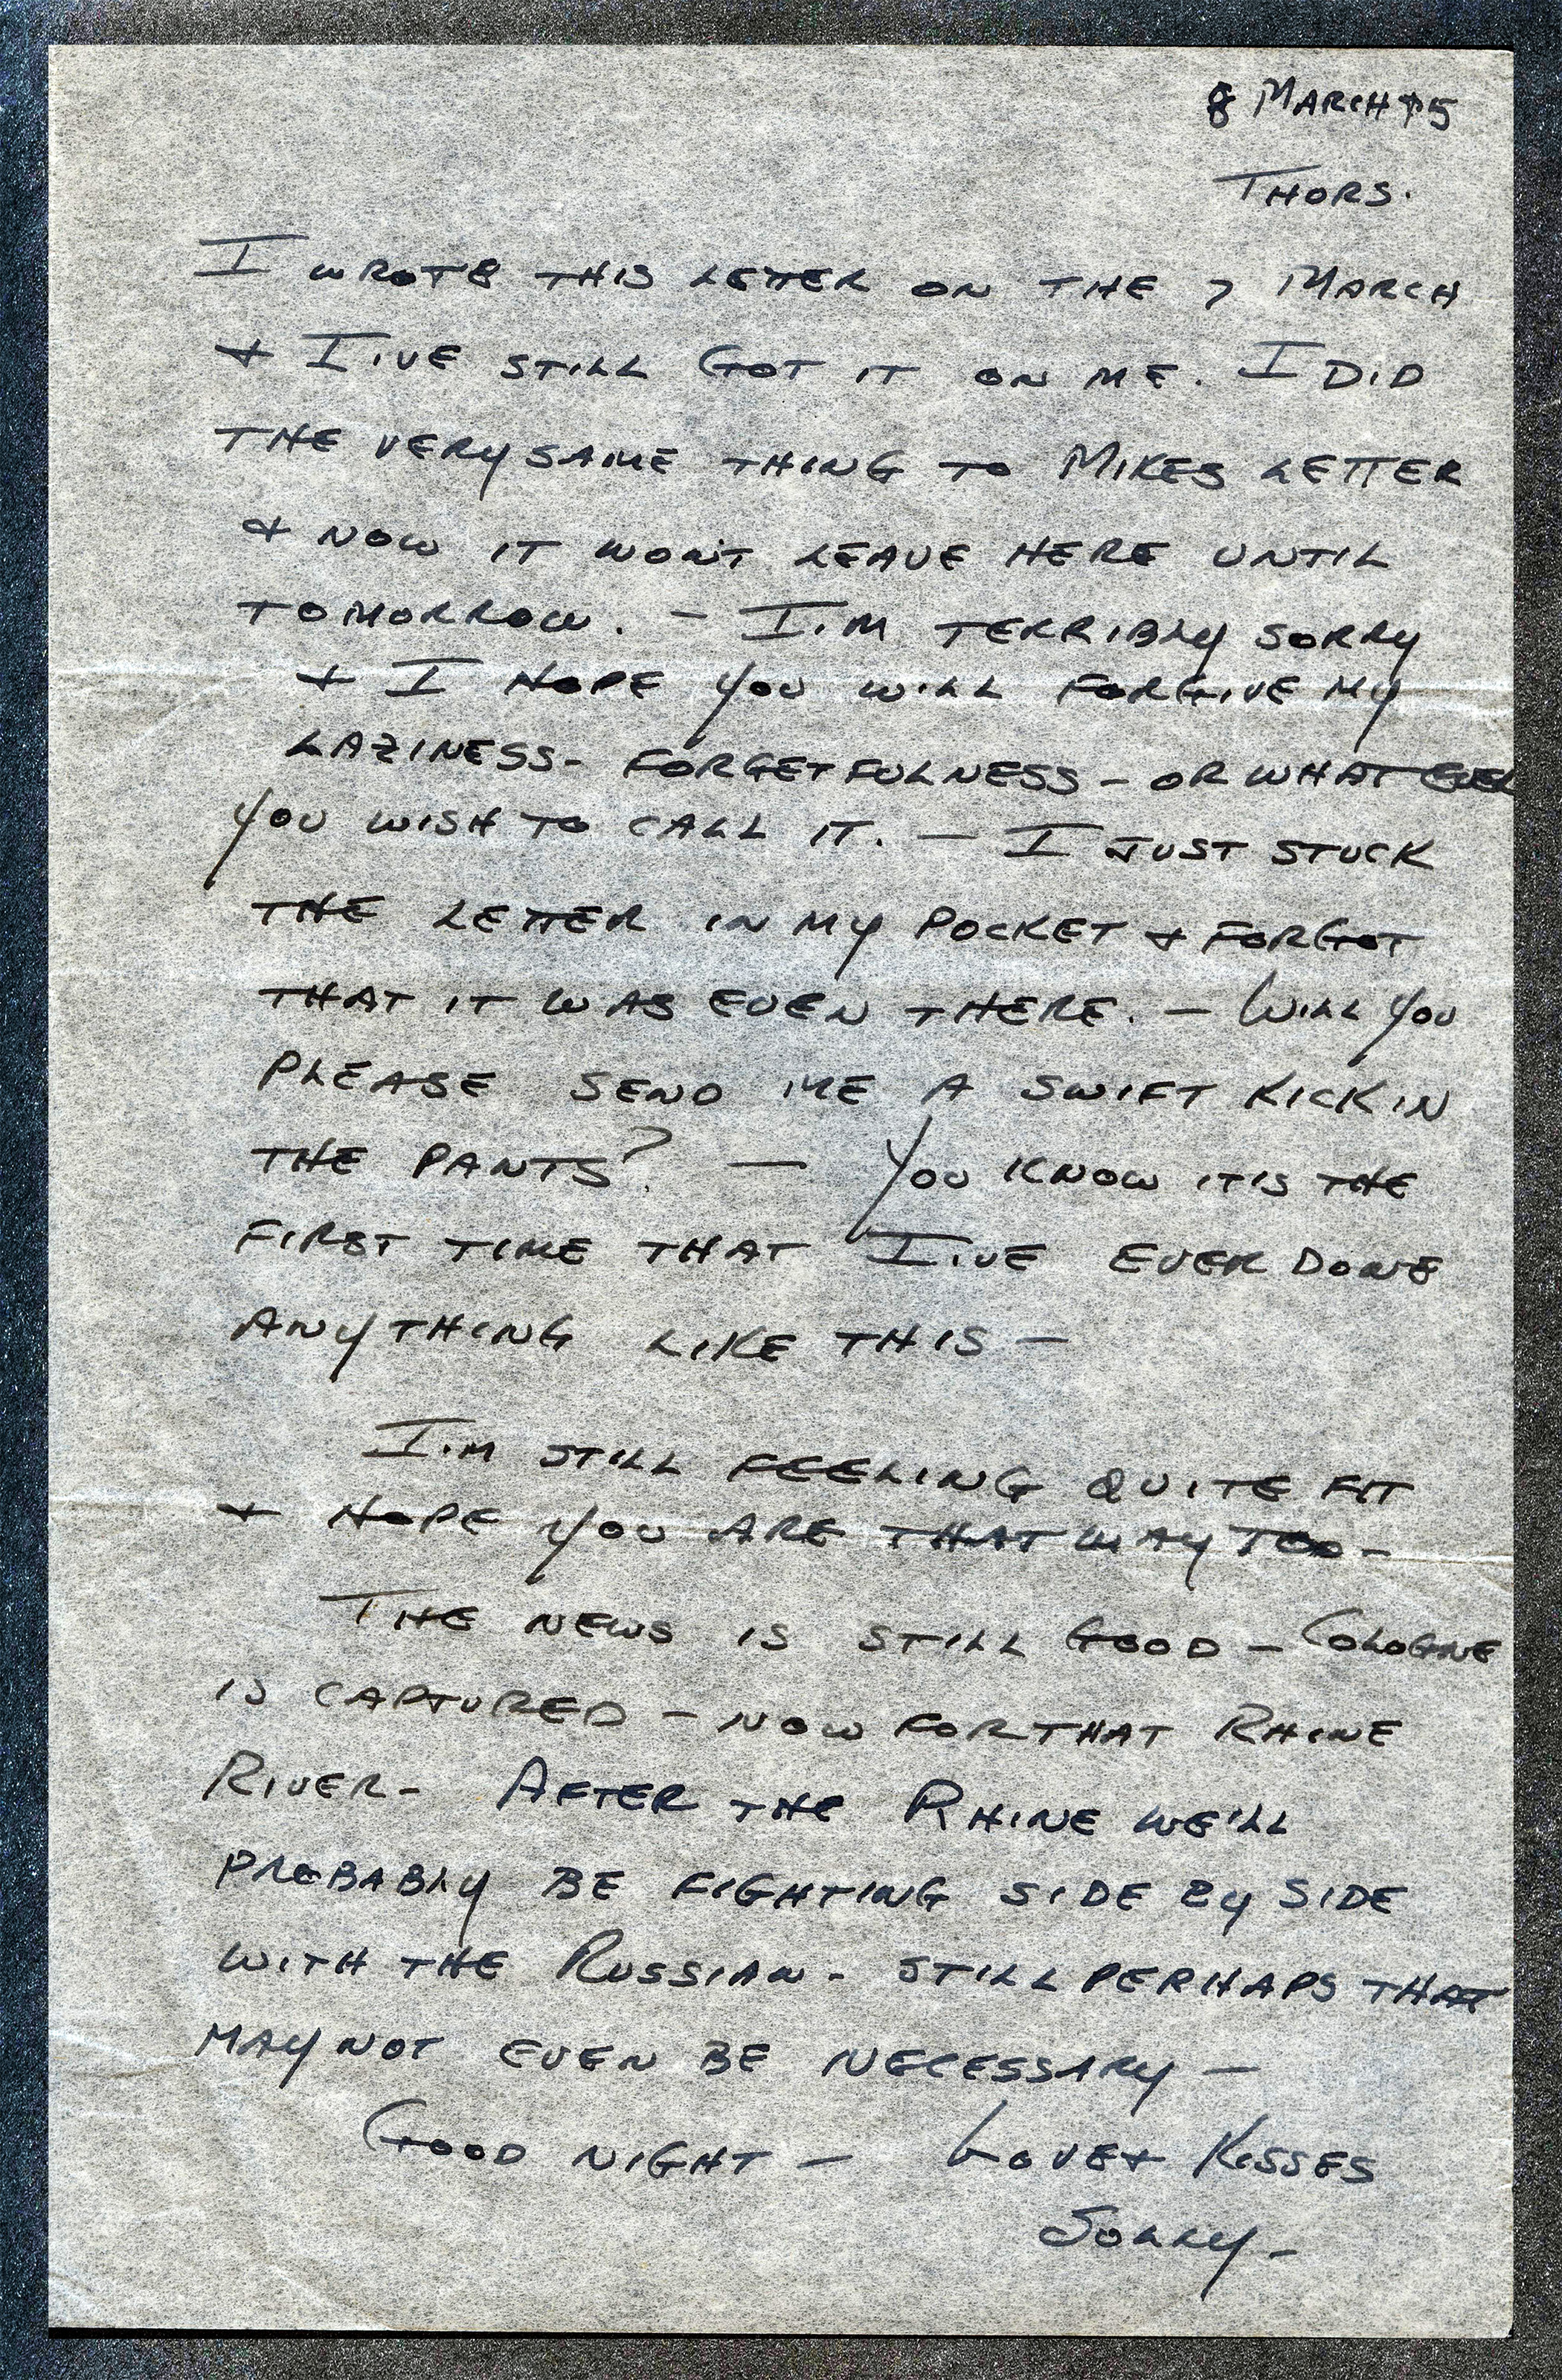 8 MARCH 45
THURS.
I WROTE THIS LETTER ON THE 7 MARCH
& I'VE STILL GOT IT ON ME. I DID
THE VERY SAME THING TO MIKES LETTER
& NOW IT WON'T LEAVE HERE UNTIL
TOMORROW. - I'M TERRIBLY SORRY
& I HOPE YOU WILL FORGIVE MY
LAZINESS - FORGETFULNESS - OR WHAT EVER
YOU WISH TO CALL IT. - I JUST STUCK
THE LETTER IN MY POCKET & FORGOT
THAT IT WAS EVEN THERE. - WILL YOU
PLEASE SEND ME A SWIFT KICK IN
THE PANTS? - YOU KNOW IT IS THE
FIRST TIME THAT I'VE EVER DONE
ANYTHING LIKE THIS -
I'M STILL FEELING QUITE FIT
& HOPE YOU ARE THAT WAY TOO -
THE NEWS IS STILL GOOD - COLOGNE
IS CAPTURED - NOW FOR THAT RHINE
RIVER - AFTER THE RHINE WE'LL
PROBABLY BE FIGHTING SIDE BY SIDE
WITH THE RUSSIAN - STILL PERHAPS THAT
MAY NOT EVEN BE NECESSARY -
GOOD NIGHT - LOVE & KISSES
SOLLY -